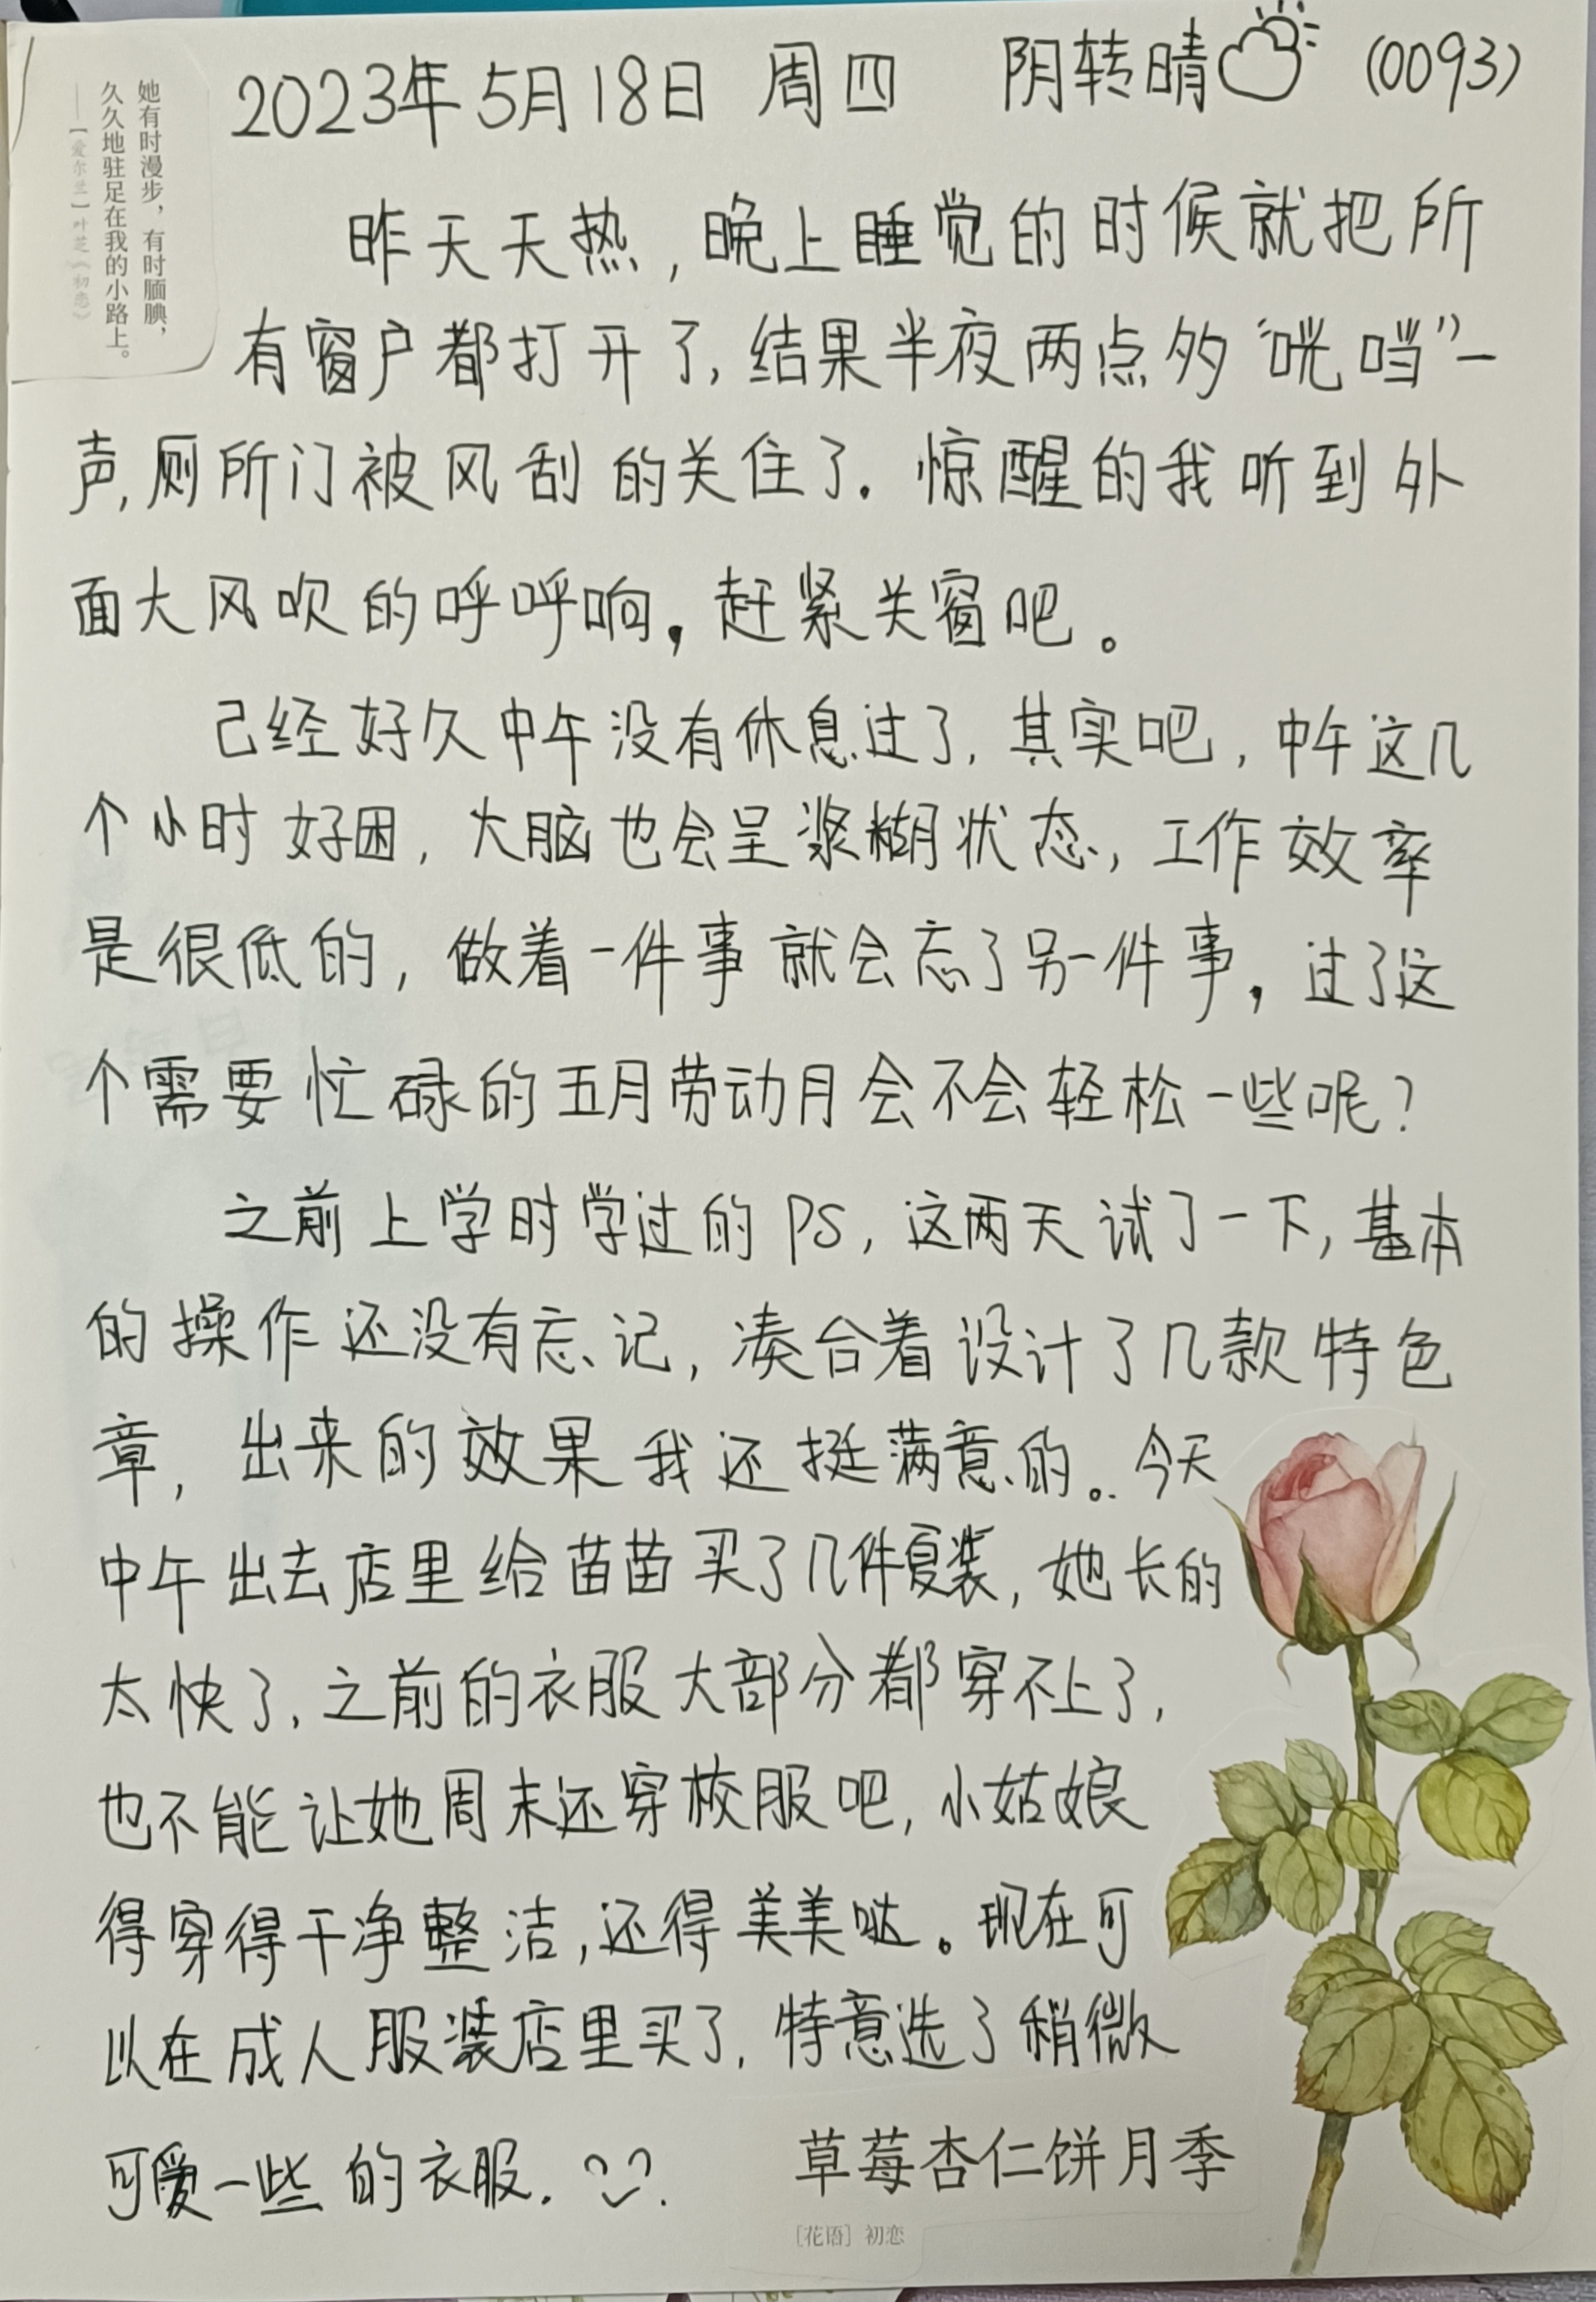 她有时漫步，有时腼腆，
久久地驻足在我的小路上。
——【爱尔兰】叶芝《初恋》
2023年5月18日 周四 阴转晴 (0093)
昨天天热，晚上睡觉的时候就把所
有窗户都打开了，结果半夜两点多“咣当”一
声，厕所门被风刮的关住了。惊醒的我听到外
面大风吹的呼呼响，赶紧关窗吧。
已经好久中午没有休息过了，其实吧，中午这几
个小时好困，大脑也会呈浆糊状态，工作效率
是很低的，做着一件事就会忘了另一件事，过了这
个需要忙碌的五月劳动月会不会轻松一些呢？
之前上学时学过的PS，这两天试了一下，基本
的操作还没有忘记，凑合着设计了几款特色
章，出来的效果我还挺满意的。今天
中午出去店里给苗苗买了几件夏装，她长的
太快了，之前的衣服大部分都穿不上了，
也不能让她周末还穿校服吧，小姑娘
得穿得干净整洁，还得美美哒。现在可
以在成人服装店里买了，特意选了稍微
可爱一些的衣服.
草莓杏仁饼月季
［花语］初恋